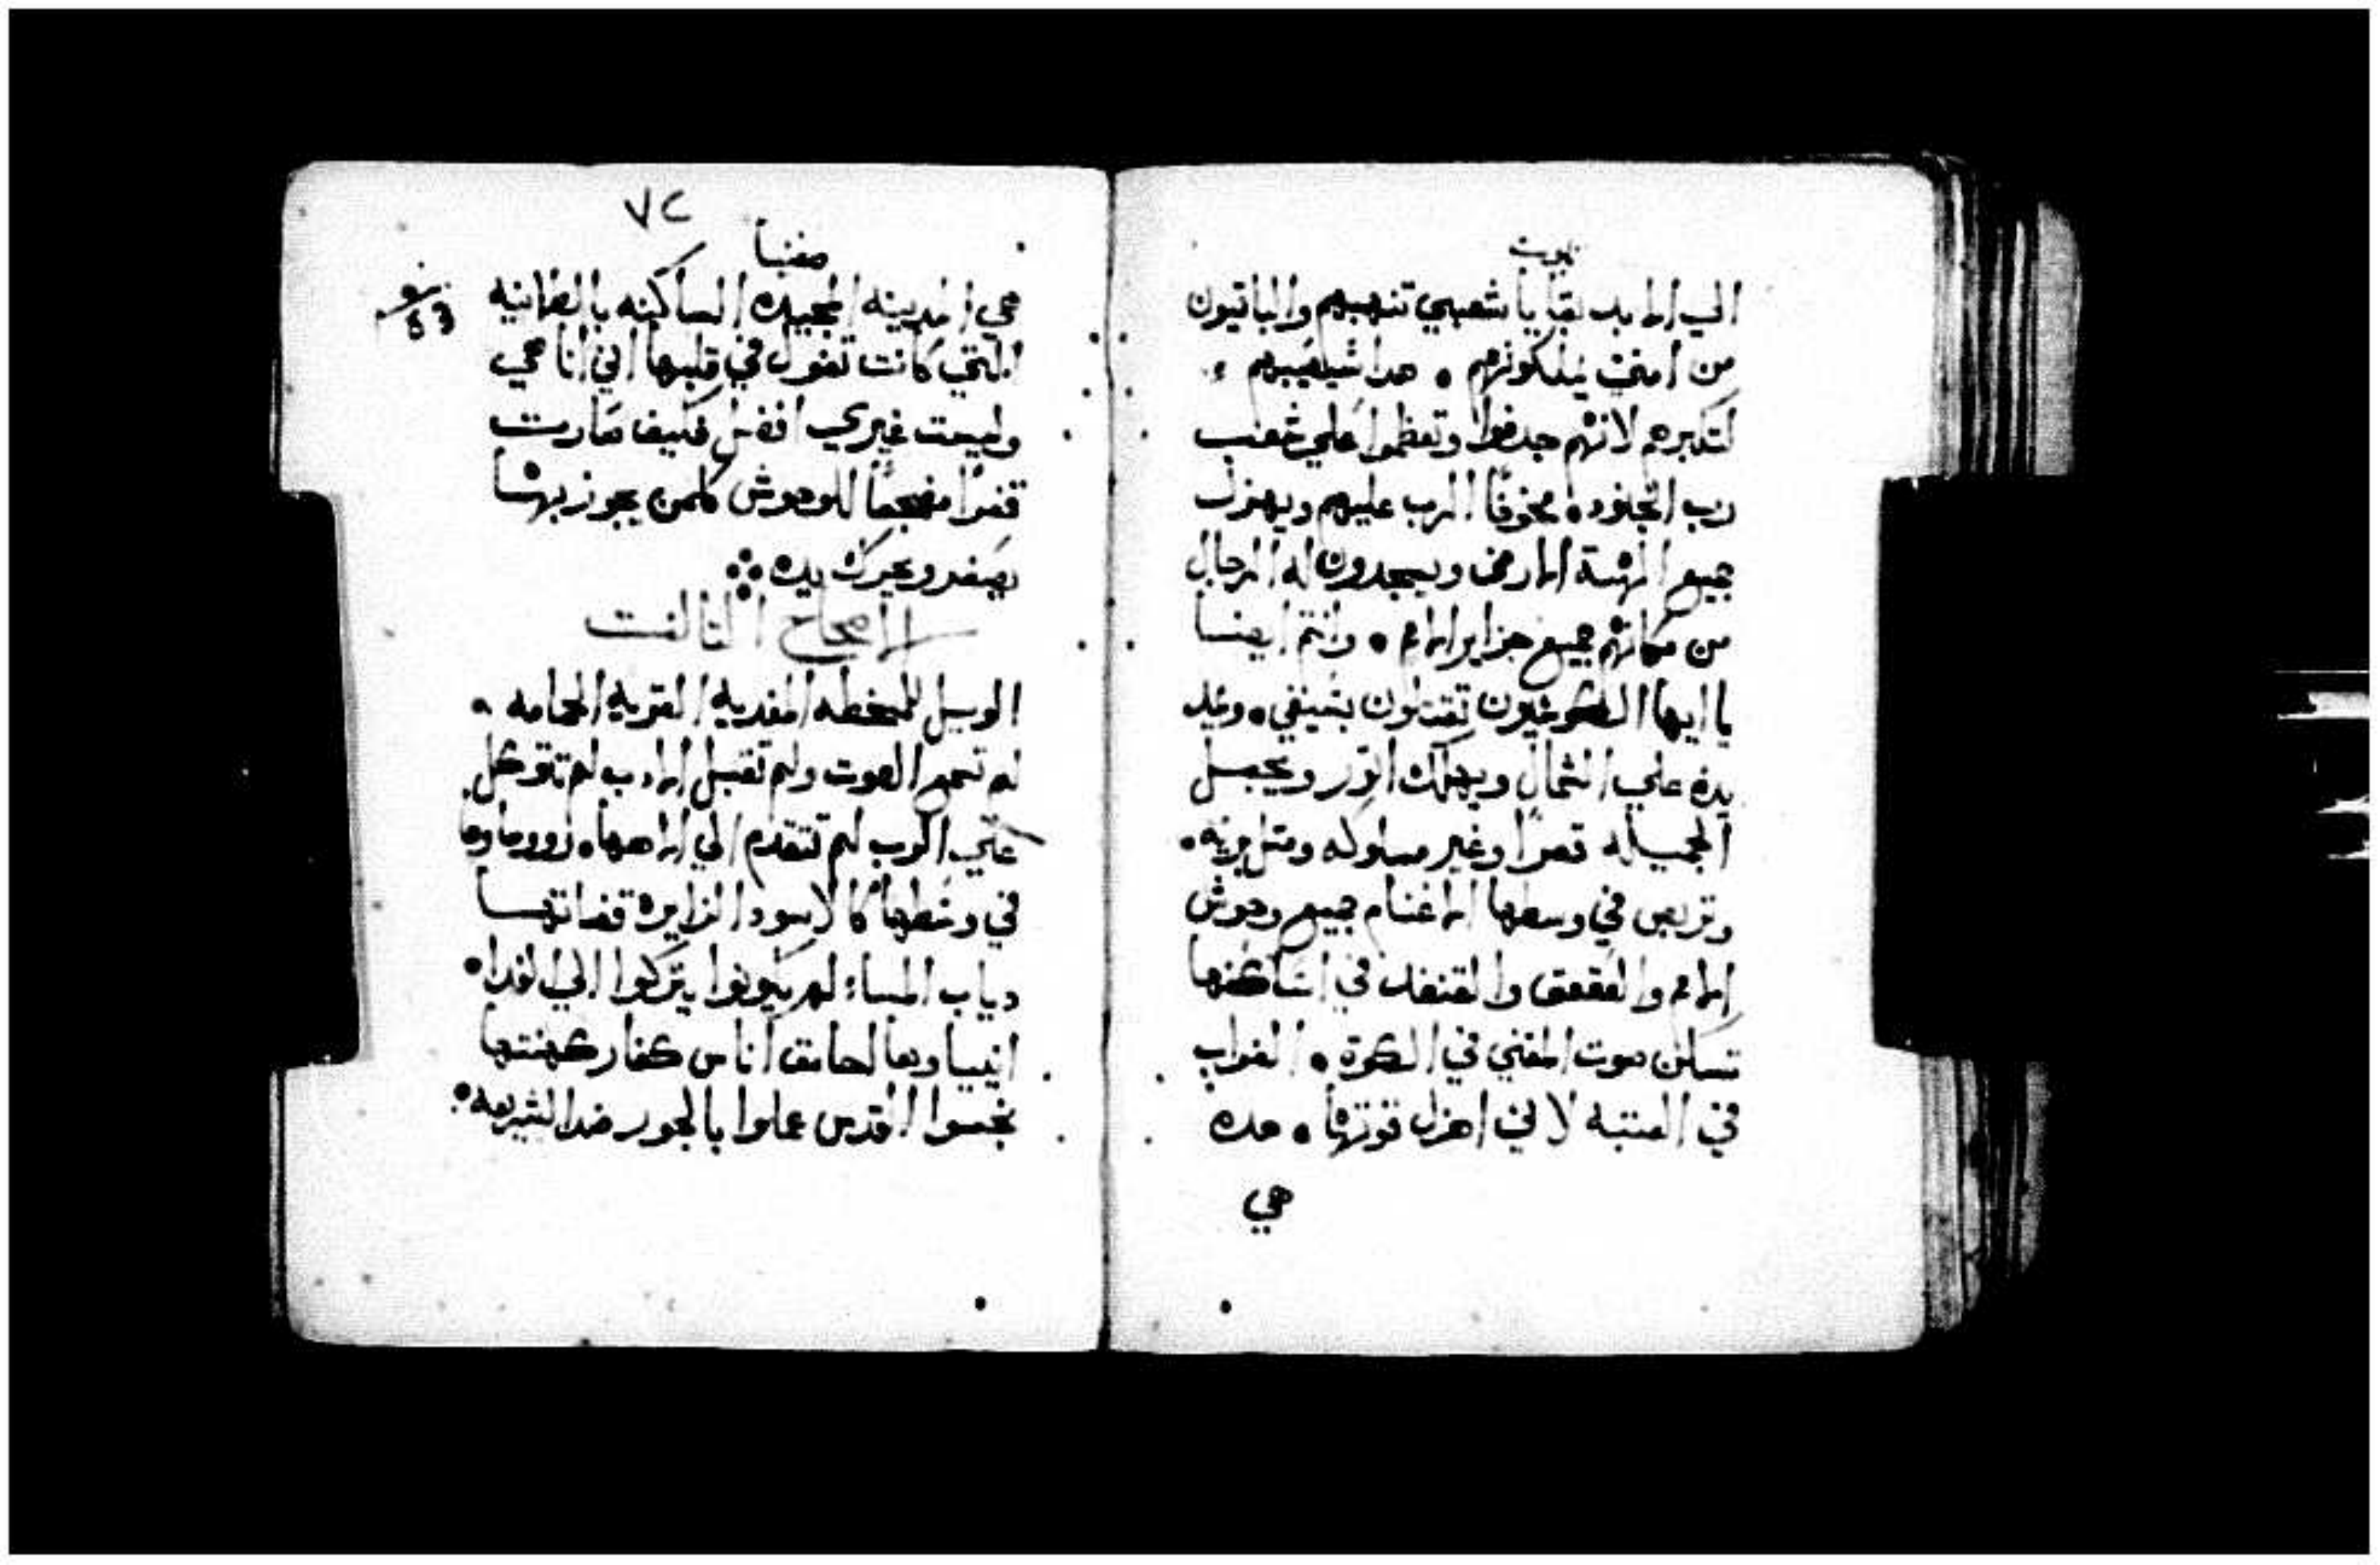 نبوت
الي الابد بقايا شعبي تنهبهم والباقيون
من امتي يملكونهم • هدا سيصيبهم
لتكبرهم لانهم جدفوا وتعظموا علي شعب
رب الجنود • مخوفًا الرب عليهم ويهزل
جميع الهة الارض ويسجدون له الرجال
من مكانهم جميع جزاير الامم • وانتم ايضا
يا ايها الكوشيون تقتلون بسيفي • ويمد
يده علي الشمال ويهلك اتور ويجعل
الجميله قفرًا وغير مسلوكه ومتل بريه •
وتربض في وسطها الاغنام جميع وحوش
الامم والقعقق والقنفد في اساكفها
تسكن صوت المغني في الكوة • الغراب
في العتبه لاني اهزل قوتها • هده
هي
٧٢
صفنيا
هي المدينه المجيده الساكنه بالطمانيه
التي كانت تقول في قلبها اني انا هي
وليست غيري افضل فكيف صارت
قفرًا مضجعًا للوحوش كلمن يجوز بها
يصفر ويحرك يده
الاصحاح التالت
الويل للسخطه المفديه القريه الحمامه •
لم تسمع الصوت ولم تقبل الادب لم تتوكل
علي الرب لم تتقدم الي الاهها • رووساوها
في وسطها كالاسود الزايره قضاتها
دياب المسا لم يكونوا يتركوا الي الغدا •
انبياوها الحامق اناس كفار كهنتها
نجسوا القدس عملوا بالجور ضد الشريعه •